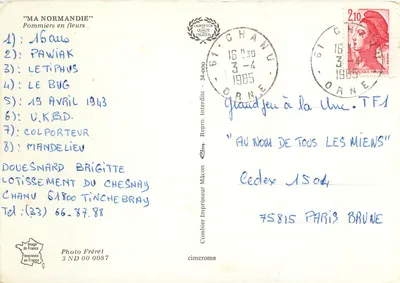 "MA NORMANDIE"
Pommiers en fleurs
1) : 16 ans
2) : PAWIAK
3) : LETIPHUS
4) : LE BUG
5) : 19 AVRIL 1943
6) : U.K.B.D.
7) : COLPORTEUR
8) : MANDELIEU
DOUESNARD BRIGITTE
LOTISSEMENT DU CHESNAY
CHANU 61800 TINCHEBRAY
Tel : (33) 66.87.88
Photo Fréret
3 ND 00 0087
Combier Imprimeur Mâcon
Repro. Interdite - 54-000
cimcrome
61 - CHANU
16 H 30
3 - 4
1985
ORNE
61 - CHANU
16
3 - 4
1985
ORNE
2,10
Grand jeu à la Une. TF1
"AU NOM DE TOUS LES MIENS"
Cedex 1504
75815 PARIS BRUNE